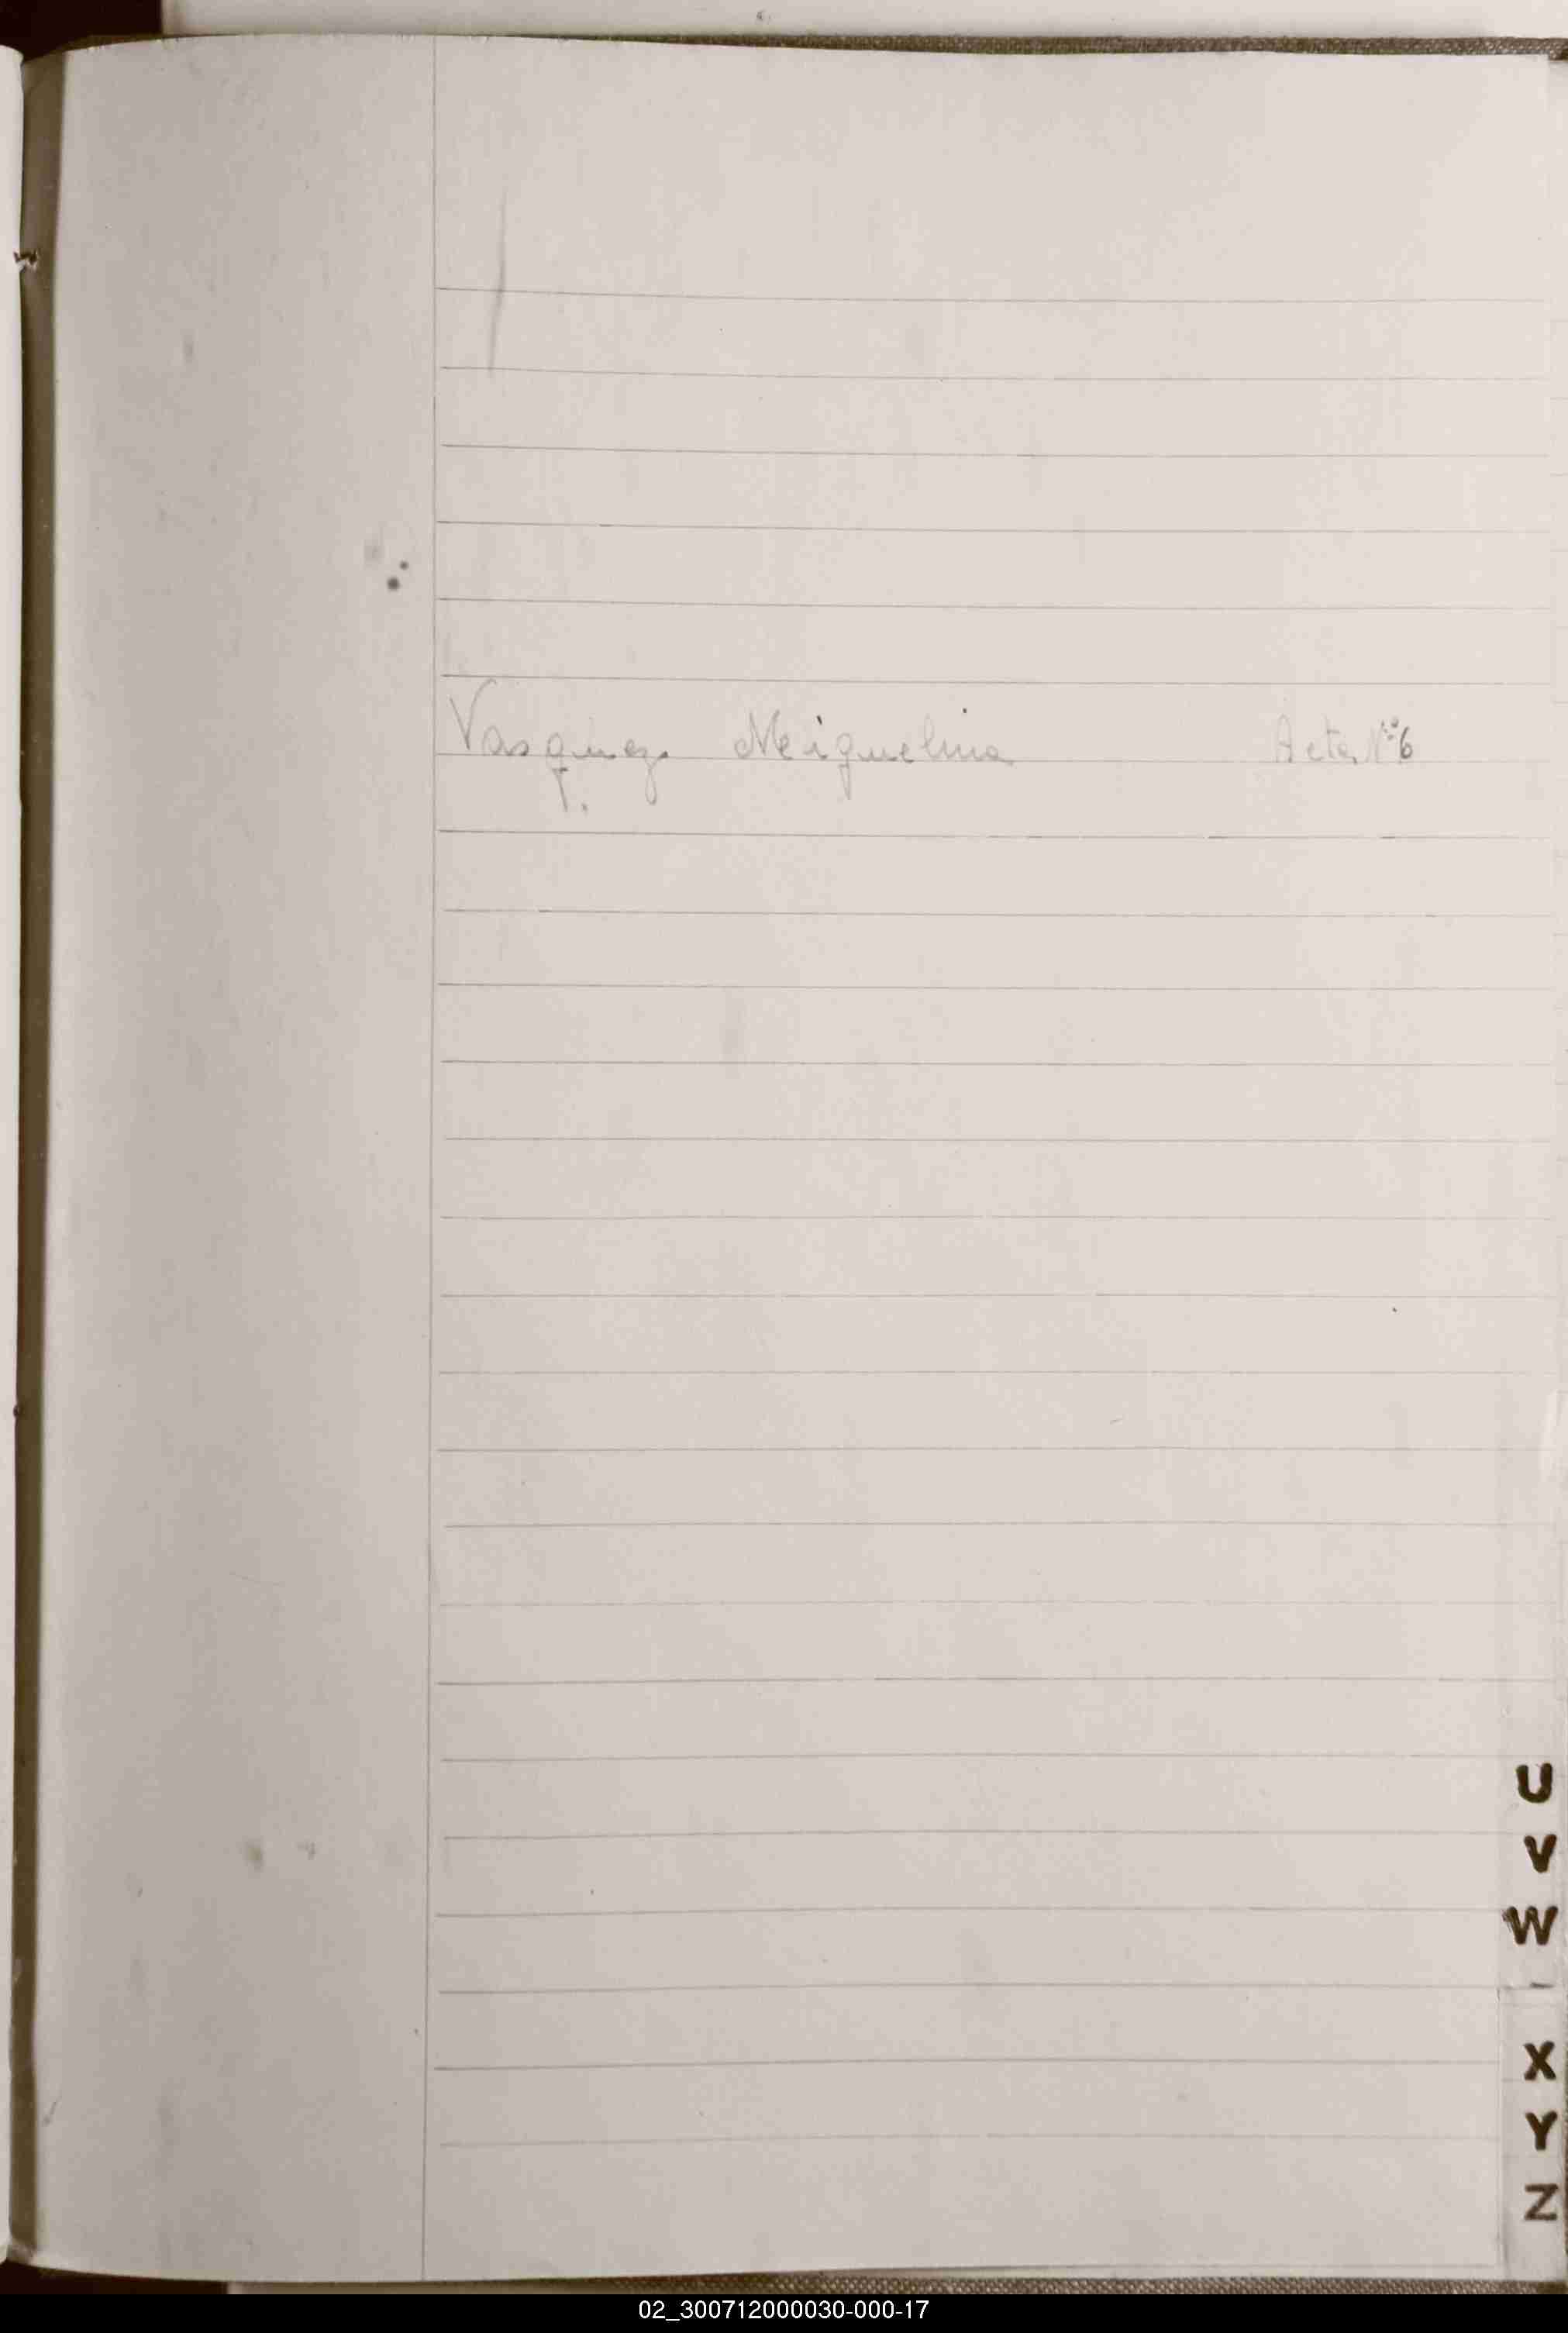 Vasquez Miguelina Acta Nº 6
U
V
W
X
Y
Z
02_300712000030-000-17